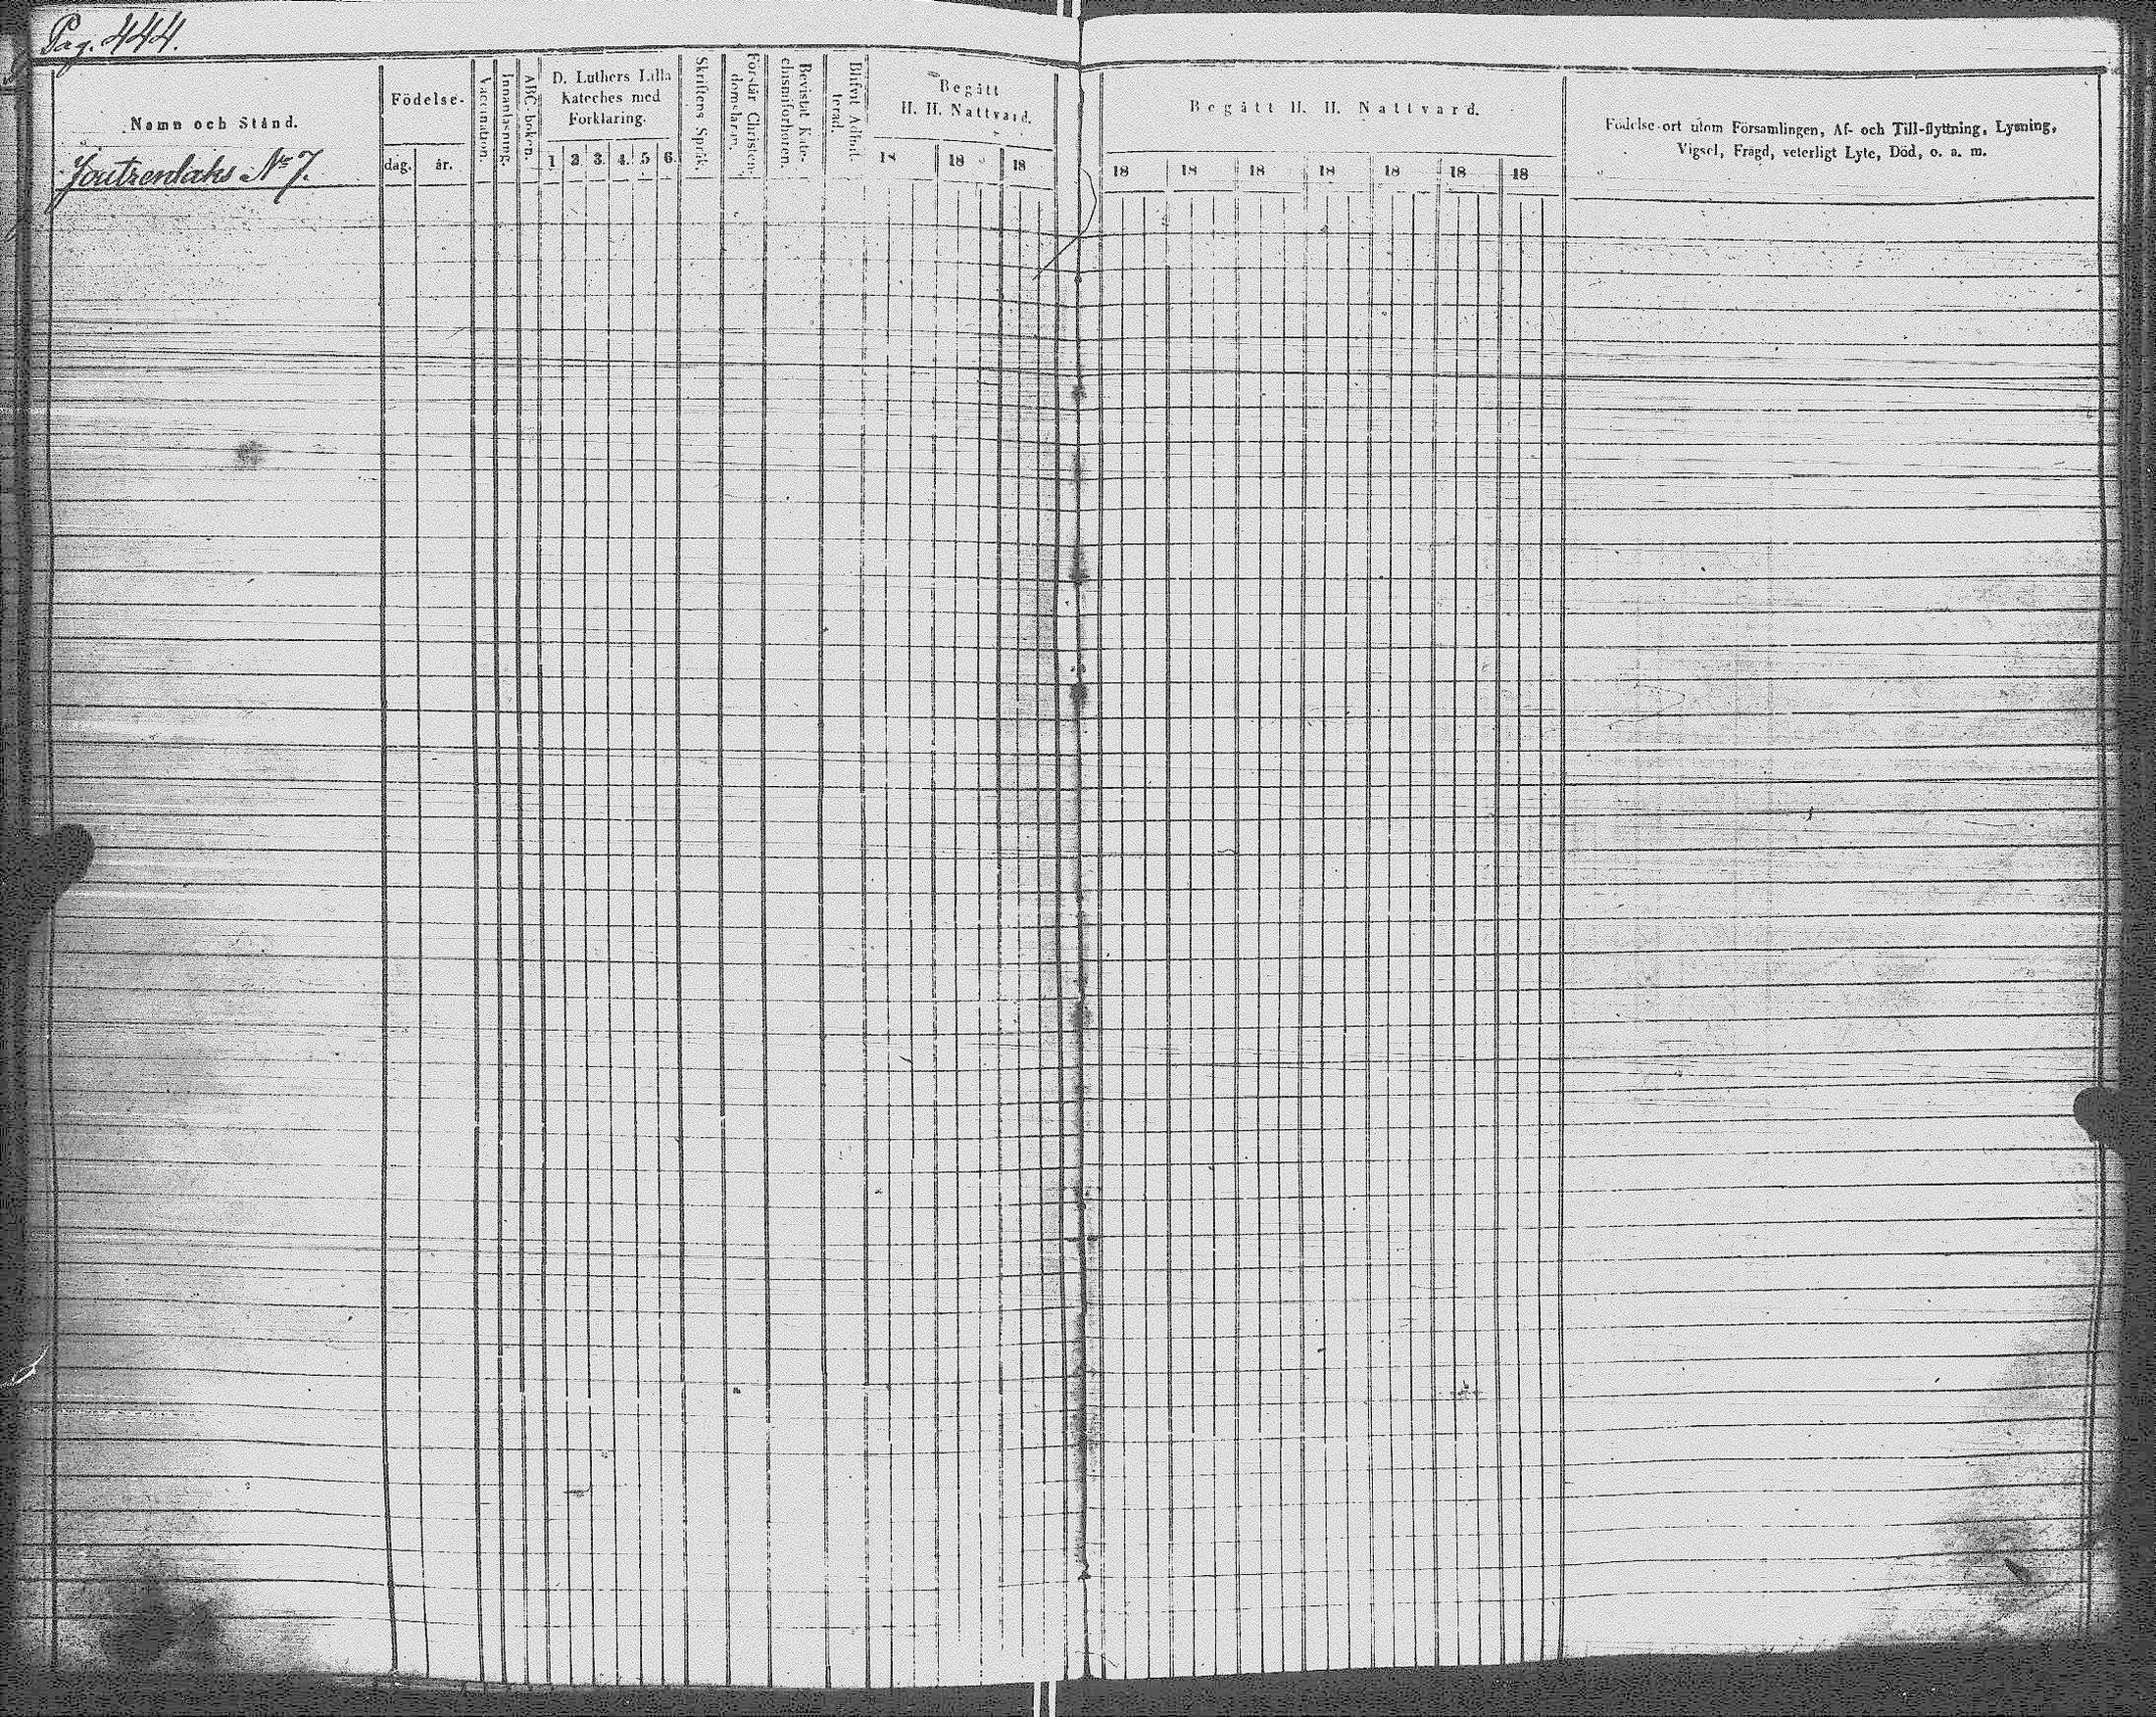 Pag. 444.
Namn och Stånd.
Joutsenlaks No 7.
Födelse-
dag.
år.
Vaccination.
Innanläsning.
ABC-boken.
D. Luthers Lilla
Kateches med
Förklaring.
1 2 3. 4. 5 6.
Skriftens Språk.
Förstår Christen-
domsläran.
Bevistat Kate-
chismiförhören.
Blifvit Admit-
terad.
Begått
H. H. Nattvard.
18 18 18
Begått H. H. Nattvard.
18 18 18 18 18 18 18
Födelse-ort utom Församlingen, Af- och Till-flyttning, Lysning,
Vigsel, Frägd, veterligt Lyte, Död, o. s. m.